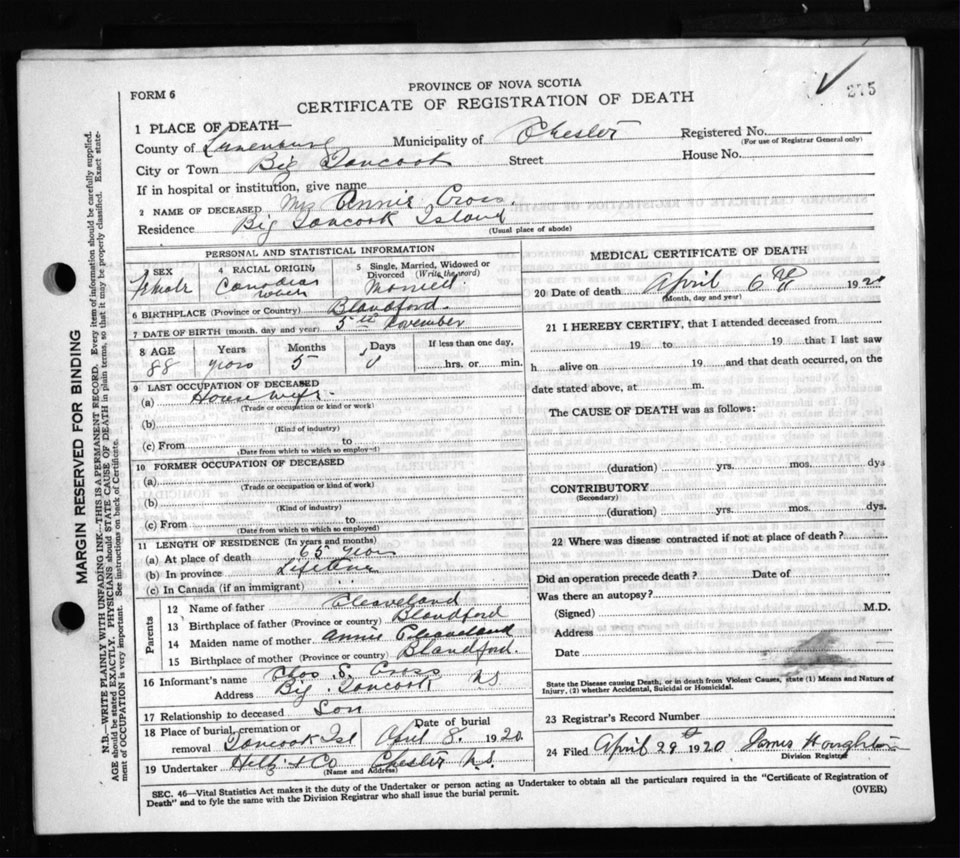 PROVINCE OF NOVA SCOTIA
FORM 6
CERTIFICATE OF REGISTRATION OF DEATH
275
1 PLACE OF DEATH—
County of Lunenburg Municipality of Chester Registered No.
(For use of Registrar General only)
City or Town Big Tancook Street House No.
If in hospital or institution, give name
2 NAME OF DECEASED Mrs Annie Cross.
Residence Big Tancook Island
(Usual place of abode)
PERSONAL AND STATISTICAL INFORMATION
3 SEX Female
4 RACIAL ORIGIN Canadian
5 Single, Married, Widowed or Divorced (Write the word)
6 BIRTHPLACE (Province or Country) Blandford.
7 DATE OF BIRTH (month, day and year) 5th November
8 AGE Years Months Days If less than one day,
88 years 5 hrs. or min.
9 LAST OCCUPATION OF DECEASED
(a) House wife.
(Trade or occupation or kind of work)
(b)
(Kind of industry)
(c) From to
(Date from which to which so employed)
10 FORMER OCCUPATION OF DECEASED
(a)
(Trade or occupation or kind of work)
(b)
(Kind of industry)
(c) From to
(Date from which to which so employed)
11 LENGTH OF RESIDENCE (In years and months)
(a) At place of death 65 years
(b) In province Lifetime
(c) In Canada (if an immigrant)
Parents
12 Name of father Cleaveland
13 Birthplace of father (Province or country) Blandford
14 Maiden name of mother Annie Cleaveland
15 Birthplace of mother (Province or country) Blandford.
16 Informant's name Chas S. Cross
Address Big Tancook NS
17 Relationship to deceased Son
18 Place of burial, cremation or removal Tancook Isl Date of burial April 8. 1920
19 Undertaker & Co Chester N.S.
(Name and Address)
MEDICAL CERTIFICATE OF DEATH
20 Date of death April 6th 1920
(Month, day and year)
21 I HEREBY CERTIFY, that I attended deceased from
19 to 19 that I last saw
h alive on 19 and that death occurred, on the
date stated above, at m.
The CAUSE OF DEATH was as follows:
(duration) yrs. mos. dys
CONTRIBUTORY
(Secondary)
(duration) yrs. mos. dys.
22 Where was disease contracted if not at place of death?
Did an operation precede death? Date of
Was there an autopsy?
(Signed) M.D.
Address
Date
State the Disease causing Death, or in death from Violent Causes, state (1) Means and Nature of
Injury, (2) whether Accidental, Suicidal or Homicidal.
23 Registrar's Record Number
24 Filed April 29th 1920 James Houghton
Division Registrar
SEC. 46—Vital Statistics Act makes it the duty of the Undertaker or person acting as Undertaker to obtain all the particulars required in the "Certificate of Registration of
Death" and to fyle the same with the Division Registrar who shall issue the burial permit.
(OVER)
MARGIN RESERVED FOR BINDING
N.B.—WRITE PLAINLY WITH UNFADING INK—THIS IS A PERMANENT RECORD. Every item of information should be carefully supplied.
AGE should be stated EXACTLY. PHYSICIANS should STATE CAUSE OF DEATH in plain terms, so that it may be properly classified. Exact state-
ment of OCCUPATION is very important. See instructions on back of Certificate.